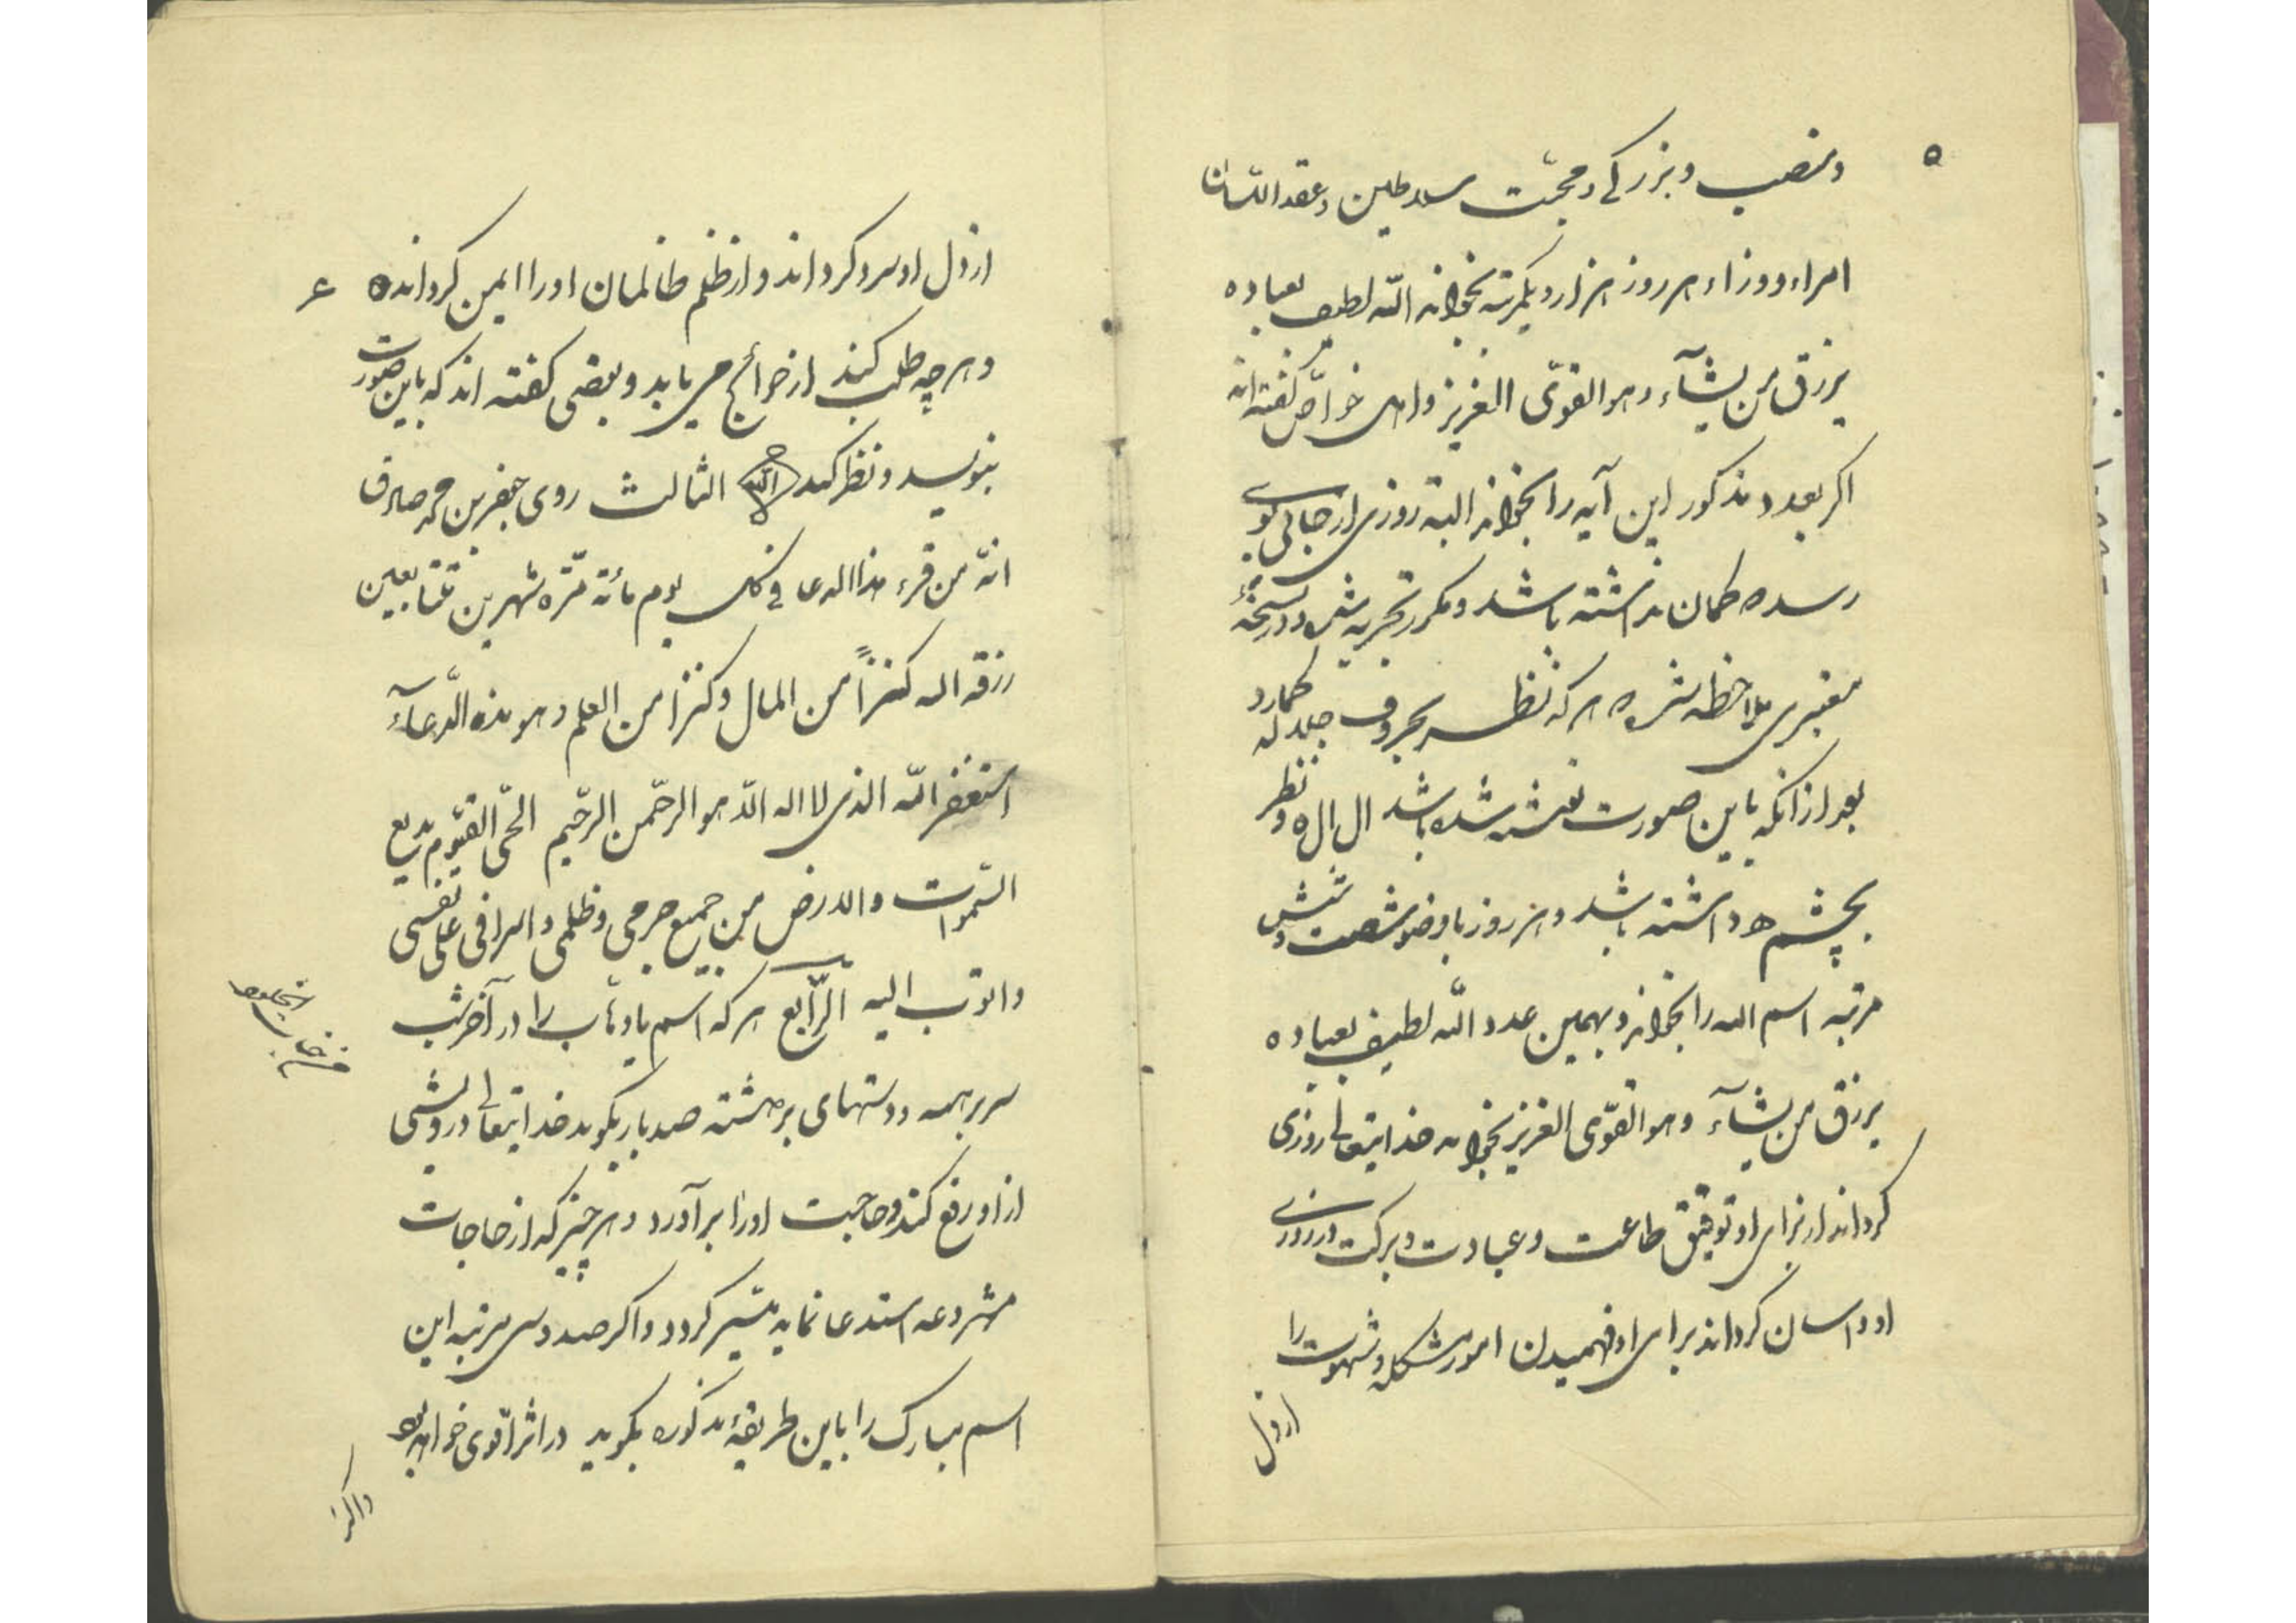 ۵
ومنصب و بزرکے و محبّت سلاطین و عقد اللسان
امراء ووزراء هر روز هزار و یکمرتبه بخواند اللّه لطیف بعباده
یرزق من یشآء وهو القویّ العزیز واهل خواصّ کفته اند
اکر بعدد مذکور این آیه را بخواند البته روزی از جائی بوی
رسد که کمان نداشته باشد و مکرر تجربه شده و در نسخهٔ
معتبری ملاحظه شده هر که نظر بحروف جلاله کمارد
بعد از انکه باین صورت نقش شده باشد ال ال ه و نظر
بچشم ه داشته باشد و هر روز با وضو شصت و شش
مرتبه اسم الله را بخواند و بهمین عدد اللّه لطیف بعباده
یرزق من یشآء وهو القوّی العزیز بخواند خدایتعالی روزی
کرداند از برای او توفیق طاعت و عبادت و برکت در روزی
او و اسان کرداند برای او فهمیدن امور مشکله و شهوت را
ازدل
۶
ازدل او سرد کرداند و از ظلم ظالمان او را ایمن کرداند
و هر چه طلب کند از حوائج می یابد و بعضی کفته اند که باین صورت
بنویسد و نظر کند الله الثالث روی جعفر بن محمد صادق
انّه من قرء هذا الدعا فی کل یوم مأئة مرّة شهرین متتابعین
رزقه الله کنزاً من المال و کنزا من العلم و هو هذه الّدعآء
استغفر اللّه الذی لا اله الّا هو الرحّمن الرحّیم الحیّ القیّوم بدیع
السّموات والارض من جمیع جرمی وظلمی واسرافی علی نفسی
واتوب الیه الرّابع هر که اسم یا وهّاب را در آخر شب
سر برهنه و دستهای برداشته صد بار بکوید خدایتعالی درویشی
از او رفع کند و حاجت او را برآورد و هر چیز که از حاجات
مشروعه استدعا نماید میّسر کردد و اکر صد و سی مرتبه این
اسم مبارک را باین طریقهٔ مذکوره بکوید در اثر اقوی خواهد بود
واکر